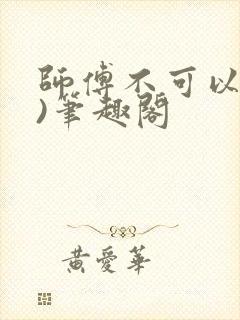 師傅不可以
)筆趣閣
黃愛華